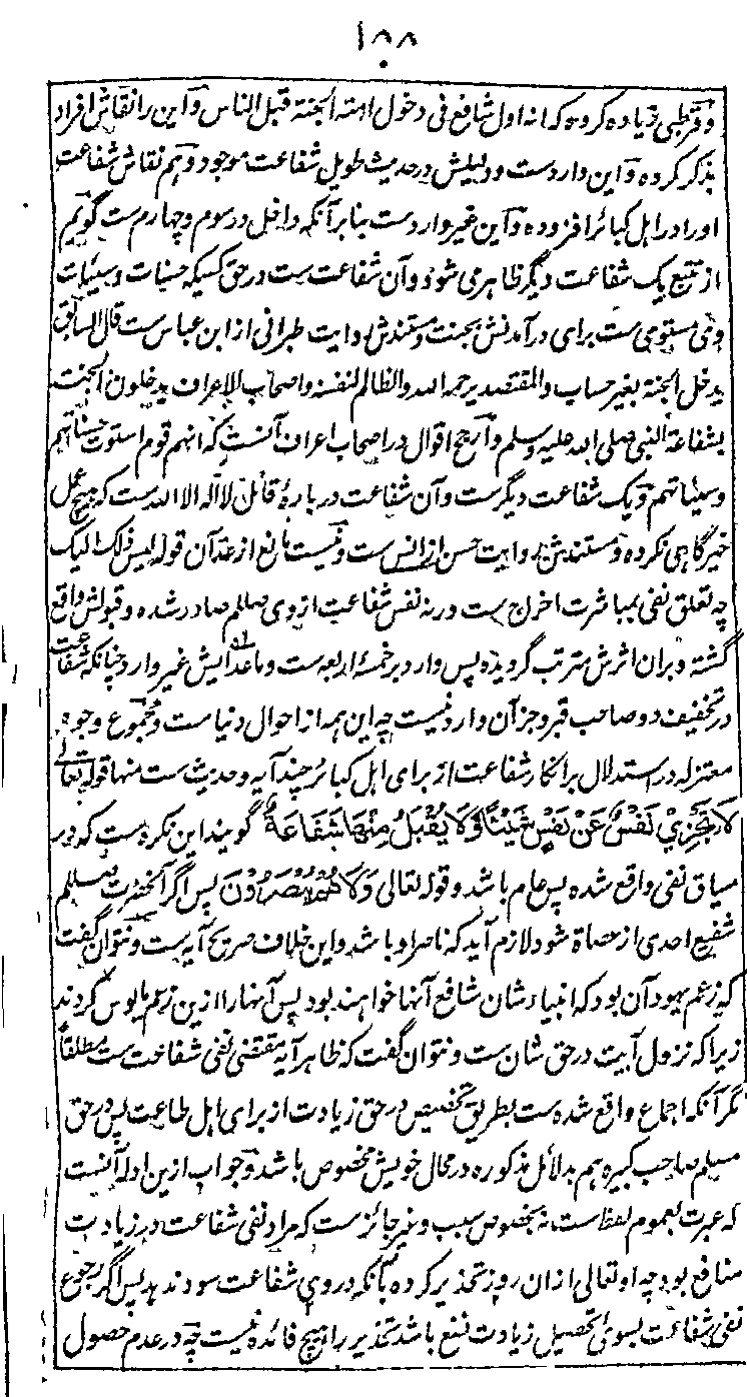 ۱۸۸
و قرطبی زیاده کرده که انه اول شافع فی دخول امته الجنة قبل الناس و این را نقاش افراد
بذکر کرده و این واردست و دلیلش در حدیث طویل شفاعت موجود و هم نقاش شفاعت
او را در اهل کبائر افزوده و این غیر واردست بنا بر آنکه داخل در سوم و چهارم ست گویم
از تتبع یک شفاعت دیگر ظاهر می شود و آن شفاعت ست در حق کسیکه حسنات و سیئات
وی مستوی ست برای در آمدنش بجنت و مستندش روایت طبرانی از ابن عباس ست قال السابق
یدخل الجنة بغیر حساب والمقتصد یرحمه الله والظالم لنفسه واصحاب الاعراف یدخلون الجنت
بشفاعة النبی صلی الله علیه وسلم و ارجح اقوال در اصحاب اعراف آنست که انهم قوم استوت حسناتهم
وسیئاتهم و یک شفاعت دیگرست و آن شفاعت دربارهٔ قائل لا اله الا الله ست که هیچ عمل
خیر گاهی نکرده و مستندش روایت حسن از انس ست و نیست مانع از عد آن قوله لیس ذلک الیک
چه تعلق نفی بمباشرت اخراج ست ورنه نفس شفاعت از وی صللم صادر شده و قبولش واقع
گشته و بران اثرش مترتب گردیده پس وارد بر خمسهٔ اربعه ست و ماعدایش غیر وارد چنانکه شفاعت
در تخفیف دو صاحب قبر و جز آن وارد نیست چه این همه از احوال دنیاست و مجموع وجوه
معتزله در استدلال بر انکار شفاعت از برای اهل کبائر چند آیه و حدیث ست منها قوله تعالی
لَا تَجْزِیْ نَفْسٌ عَنْ نَفْسٍ شَیْئًا وَّلَا یُقْبَلُ مِنْهَا شَفَاعَةٌ گویند این نکره ست که در
سیاق نفی واقع شده پس عام باشد و قوله تعالی وَلَا هُمْ یُنْصَرُوْنَ پس اگر آنحضرت صللم
شفیع احدی از عصاة شود لازم آید که ناصر او باشد و این خلاف صریح آیه ست و نتوان گفت
که زعم یهود آن بود که انبیاء شان شافع آنها خواهند بود پس آنها را ازین زعم مایوس کردند
زیرا که نزول آیت در حق شان ست و نتوان گفت که ظاهر آیه مقتضی نفی شفاعت ست مطلقاً
مگر آنکه اجماع واقع شده ست بطریق تخصیص در حق زیادت از برای اهل طاعت پس در حق
مسلم صاحب کبیره هم بدلائل مذکوره در محال خویش مخصوص باشد و جواب ازین ادله آنست
که عبرت بعموم لفظ ست نه بخصوص سبب و غیر جائزست که مراد نفی شفاعت در زیادت
منافع بود چه او تعالی ازان روز تحذیر کرده بآنکه دروی شفاعت سود ندهد پس اگر رجوع
نفی شفاعت بسوی تحصیل زیادت نفع باشد تحذیر را هیچ فائده نیست چه در عدم حصول